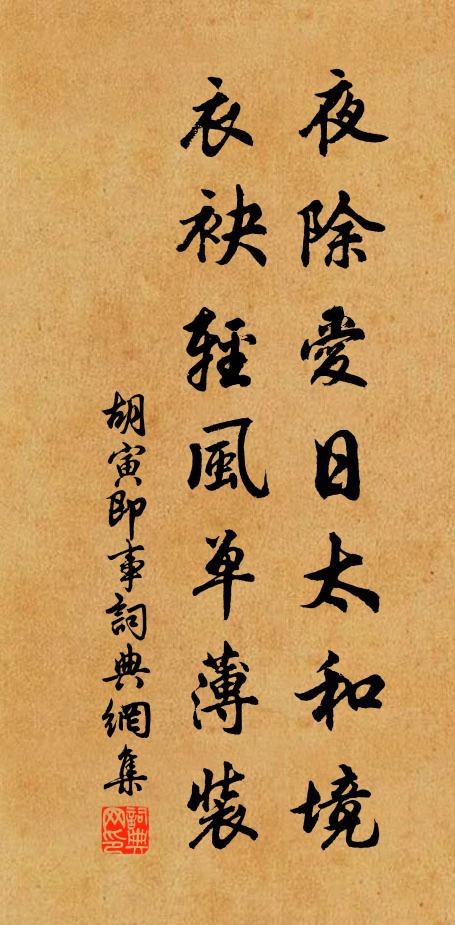 夜除愛日太和境
衣袂輕風單薄裝
胡寅即事詞典網集
詞典網印